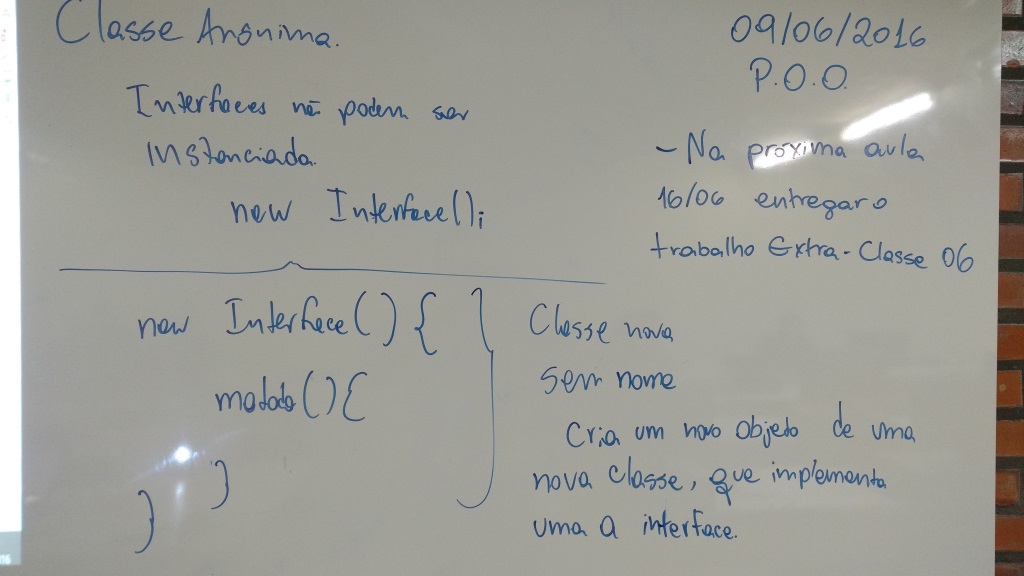 Classe Anônima.
09/06/2016
P.O.O.
Interfaces não podem ser
instanciada.
new Interface();
- Na próxima aula
16/06 entregar o
trabalho Extra-Classe 06
new Interface() {
metodo() {
}
}
Classe nova
sem nome
Cria um novo objeto de uma
nova classe, que implementa
uma a interface.